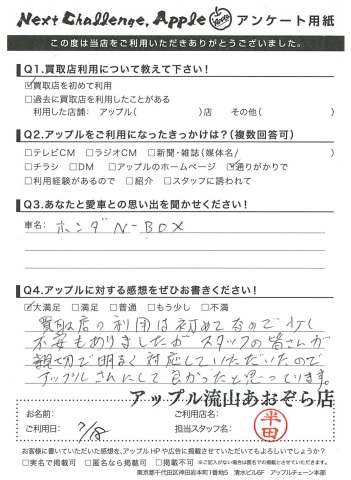 Next Challenge, Apple アンケート用紙
この度は当店をご利用いただきありがとうございました。
Q1.買取店利用について教えて下さい!
☑買取店を初めて利用
□過去に買取店を利用したことがある
利用した店舗: アップル( )店 その他( )
Q2.アップルをご利用になったきっかけは?(複数回答可)
□テレビCM □ラジオCM □新聞・雑誌(媒体名/ )
□チラシ □DM □アップルのホームページ ☑通りがかりで
□利用経験があるので □紹介 □スタッフに誘われて
Q3.あなたと愛車との思い出を聞かせください!
車名: ホンダ N-BOX
Q4.アップルに対する感想をぜひお書きください!
☑大満足 □満足 □普通 □もう少し □不満
買取店の利用は初めてなので少し
不安もありましたがスタッフの皆さんが
親切で明るく対応していただいたので
アップルさんにして良かったと思っています。
アップル流山あおぞら店
お名前: ご利用店名:
ご利用日: 7/18 担当スタッフ名: 半田
お客様に書いていただいた感想を、アップルHPや広告に掲載させていただいてもよろしいでしょうか?
□実名で掲載可 □匿名なら掲載可 □掲載不可 ※ご記入がない場合は匿名での掲載とさせていただきます。
東京都千代田区神田岩本町1番地5 清水ビル5F アップルチェーン本部